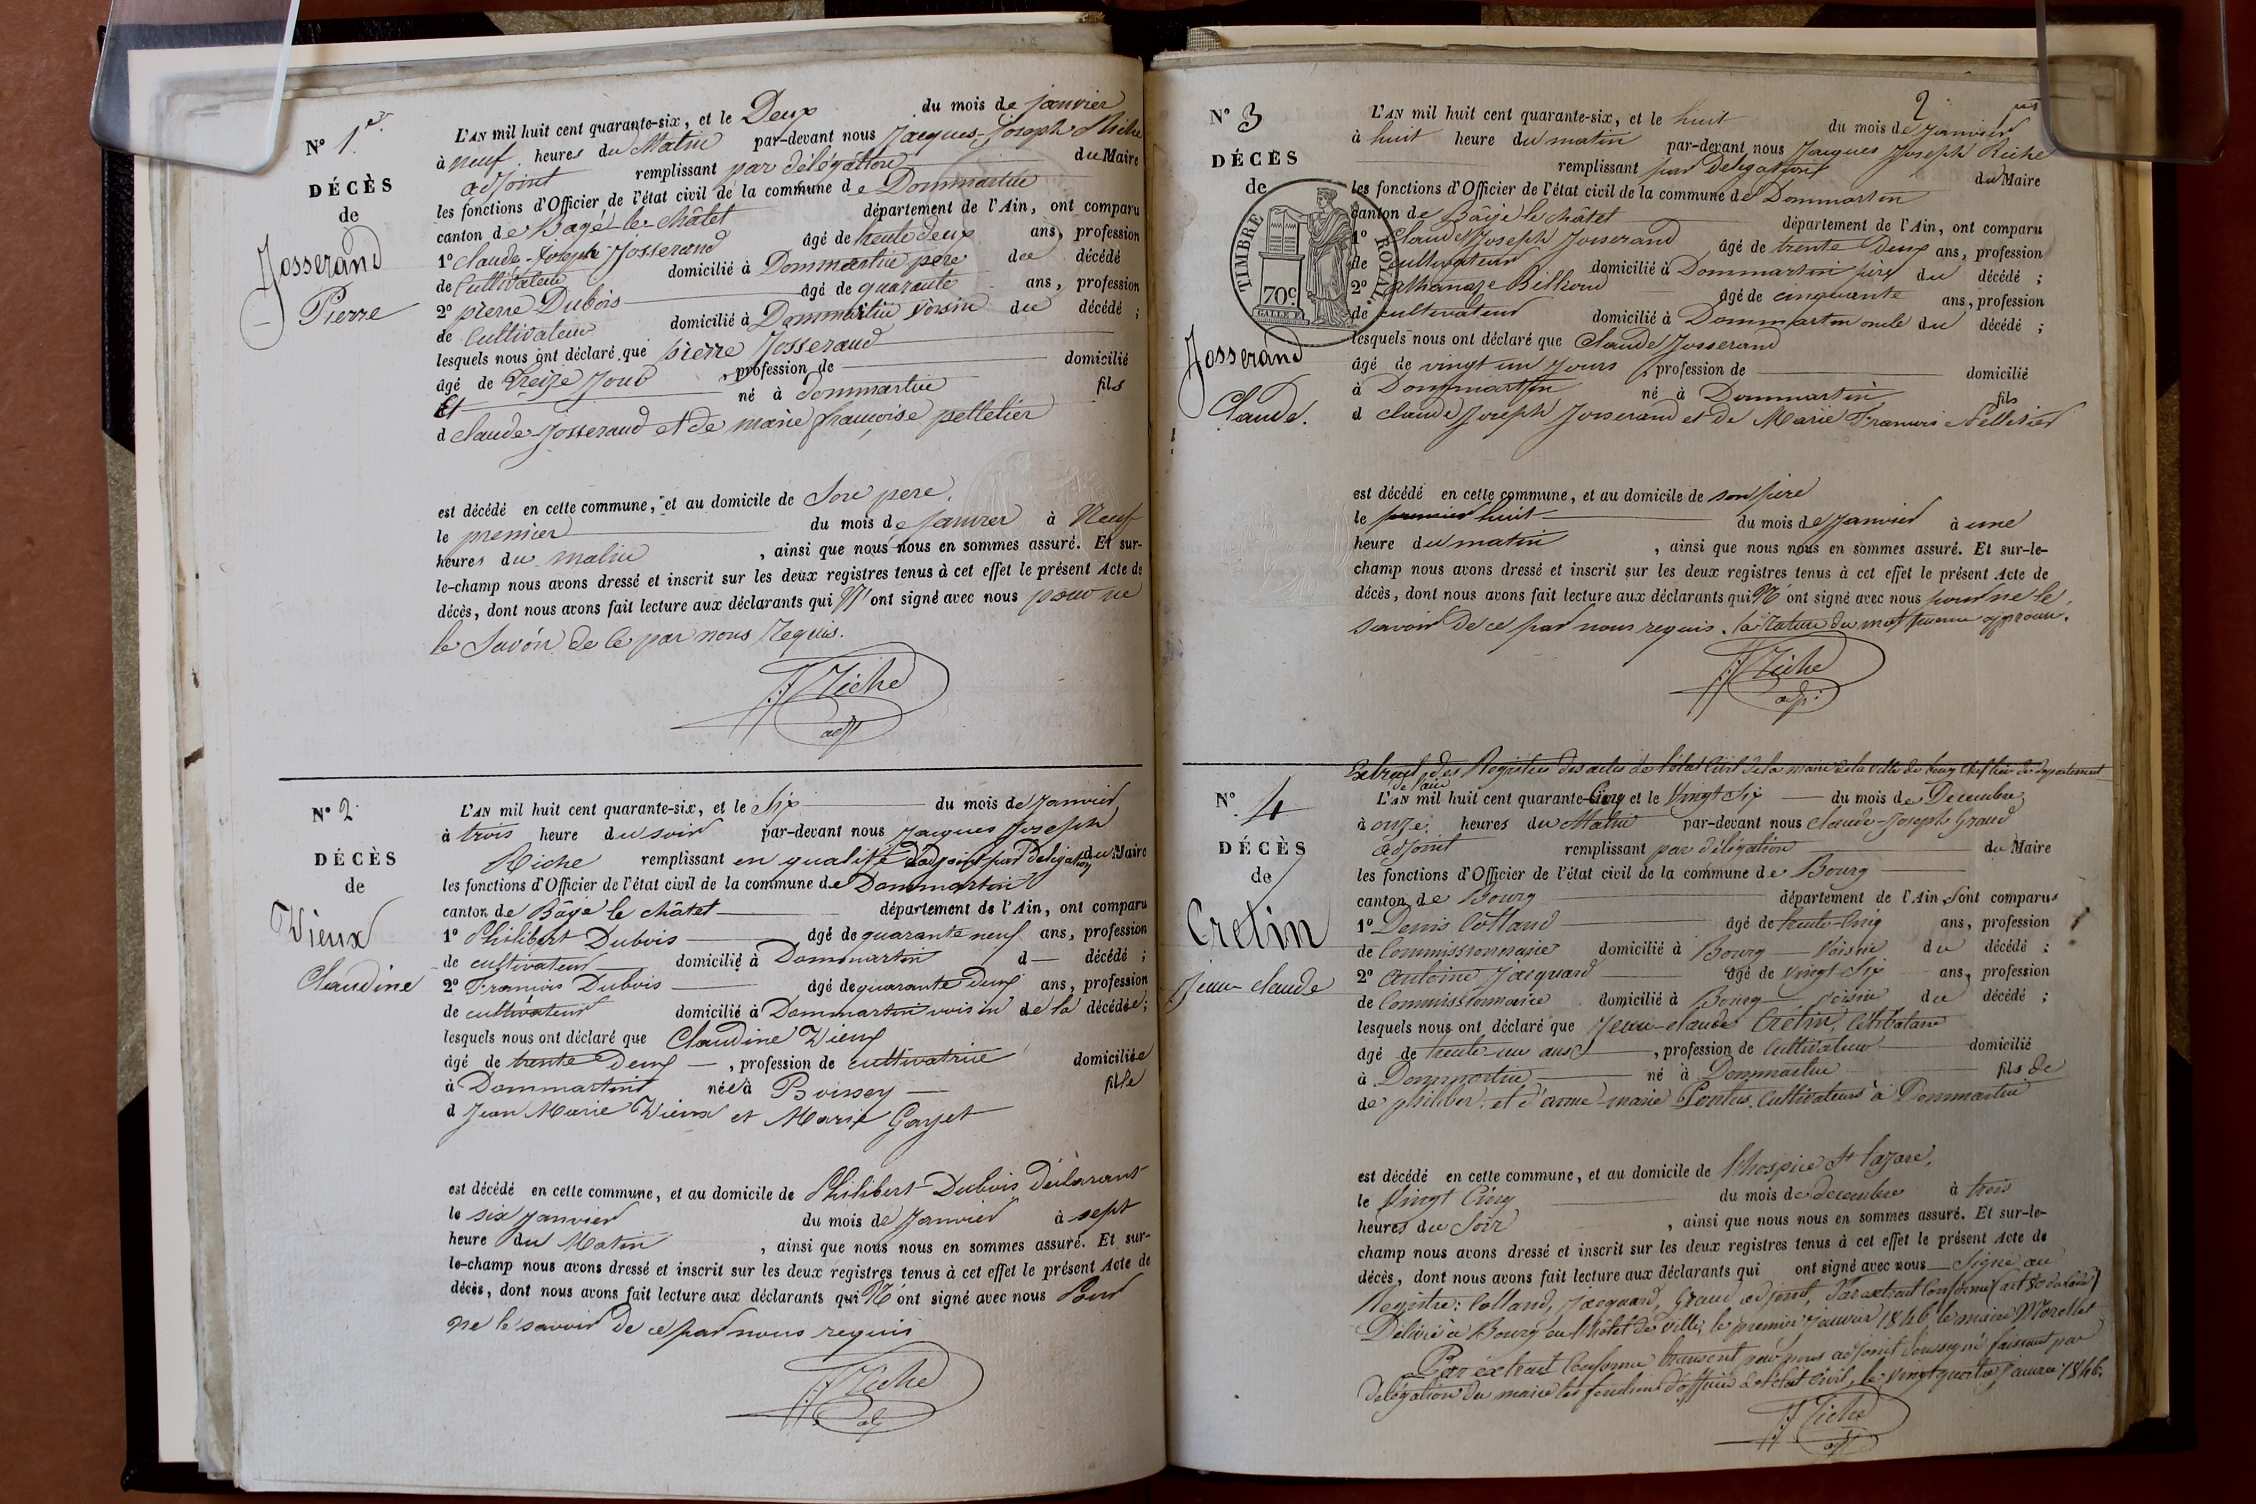 N° 1er
DÉCÈS
de
Josserand
Pierre
L'AN mil huit cent quarante-six, et le Deux du mois de janvier
à neuf heures du Matin par-devant nous Jacques-Joseph Riche
adjoint remplissant par délégation du Maire
les fonctions d'Officier de l'état civil de la commune de Dommartin
canton de Bagé-le-châtel département de l'Ain, ont comparu
1° claude-Joseph Josserand âgé de trente deux ans, profession
de Cultivateur domicilié à Dommartin père du décédé
2° pierre Dubois âgé de quarante ans, profession
de Cultivateur domicilié à Dommartin voisin du décédé ;
lesquels nous ont déclaré que pierre Josserand
âgé de treize Jour, profession de domicilié
Et né à dommartin fils
d claude Josserand et de marie françoise pelletier
est décédé en cette commune, et au domicile de Son pere,
le premier du mois de janvier à Neuf
heures du matin, ainsi que nous nous en sommes assuré. Et sur-
le-champ nous avons dressé et inscrit sur les deux registres tenus à cet effet le présent Acte de
décès, dont nous avons fait lecture aux déclarants qui N'ont signé avec nous pour ne
le Savoir de ce par nous Requis.
JJ Riche
adjt
N° 2
DÉCÈS
de
Vieux
Claudine
L'AN mil huit cent quarante-six, et le Six du mois de Janvier
à trois heure du soir par-devant nous Jacques Joseph
Riche remplissant en qualité d'adjoint par Délégation du Maire
les fonctions d'Officier de l'état civil de la commune de Dommartin
canton de Bâgé le châtel département de l'Ain, ont comparu
1° Philibert Dubois âgé de quarante neuf ans, profession
de cultivateur domicilié à Dommartin d décédé ;
2° François Dubois âgé de quarante Deux ans, profession
de cultivateur domicilié à Dommartin voisin de la décédée ;
lesquels nous ont déclaré que Claudine Vieux
âgé de trente Deux, profession de cultivatrice domiciliée
à Dommartin née à Boissey fille
d Jean Marie Vieux et Marie Gayet
est décédé en cette commune, et au domicile de Philibert Dubois Déclarant
le six Janvier du mois de Janvier à sept
heure du Matin, ainsi que nous nous en sommes assuré. Et sur-
le-champ nous avons dressé et inscrit sur les deux registres tenus à cet effet le présent Acte de
décès, dont nous avons fait lecture aux déclarants qui N'ont signé avec nous Pour
ne le savoir de ce par nous requis
JJ Riche
adj
2
N° 3
DÉCÈS
de
TIMBRE ROYAL
70c
Josserand
Claude.
L'AN mil huit cent quarante-six, et le huit du mois de Janvier
à huit heure du matin par-devant nous Jacques Joseph Riche
remplissant par Délégation du Maire
les fonctions d'Officier de l'état civil de la commune de Dommartin
canton de Bâgé le châtel département de l'Ain, ont comparu
1° Claude Joseph Josserand âgé de trente Deux ans, profession
de cultivateur domicilié à Dommartin père du décédé ;
2° Athanaze Billoud âgé de cinquante ans, profession
de cultivateur domicilié à Dommartin oncle du décédé ;
lesquels nous ont déclaré que Claude Josserand
âgé de vingt un Jours, profession de domicilié
à Dommartin né à Dommartin fils
d claude Joseph Josserand et de Marie Francoise Pelletier
est décédé en cette commune, et au domicile de son père
le premier huit du mois de Janvier à une
heure du matin, ainsi que nous nous en sommes assuré. Et sur-le-
champ nous avons dressé et inscrit sur les deux registres tenus à cet effet le présent Acte de
décès, dont nous avons fait lecture aux déclarants qui N'ont signé avec nous pour ne le
savoir de ce par nous requis. la rature du mot approuvé.
JJ Riche
adj.
Extrait des Registres des actes de l'état Civil de la mairie de la ville de bourg chef lieu du département
de l'ain
N° 4
DÉCÈS
de
Cretin
Jean-claude
L'AN mil huit cent quarante-Cinq et le Vingt Six du mois de Decembre
à onze heures du Matin par-devant nous claude-Joseph Graud
adjoint remplissant par délégation du Maire
les fonctions d'Officier de l'état civil de la commune de Bourg
canton de Bourg département de l'Ain, Sont comparus
1° Denis Colland âgé de trente-Cinq ans, profession
de Commissionnaire domicilié à Bourg Voisin du décédé ;
2° Antoine Jacquard âgé de Vingt-Six ans, profession
de Commissionnaire domicilié à Bourg voisin du décédé ;
lesquels nous ont déclaré que Jean-claude Cretin, Célibataire
âgé de trente-un ans, profession de Cultivateur domicilié
à Dommartin né à Dommartin fils de
de philiber et d'anne-marie Pontus, Cultivateurs à Dommartin
est décédé en cette commune, et au domicile de l'hospice St lazare,
le Vingt Cinq du mois de decembre à trois
heures du Soir, ainsi que nous nous en sommes assuré. Et sur-le-
champ nous avons dressé et inscrit sur les deux registres tenus à cet effet le présent Acte de
décès, dont nous avons fait lecture aux déclarants qui ont signé avec nous Signé au
Registre: Colland, Jacquard, Graud adjoint, Par extrait Conforme
Délivré à Bourg en l'hôtel de ville, le premier Janvier 1846 le maire Morellet
Par extrait Conforme transcrit par nous adjoint Soussigné faisant par
délégation du maire les fonctions d'officier de l'état civil, le vingt quatre Janvier 1846.
JJ Riche
adj